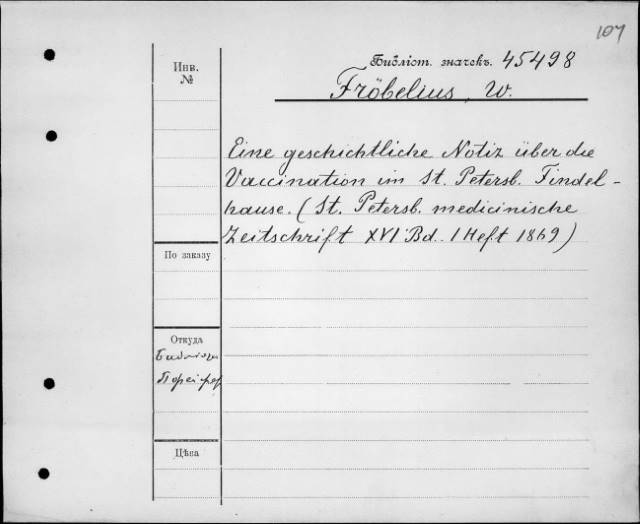 107
Инв. №
Библіот. значекъ. 45498
Fröbelius, W.
Eine geschichtliche Notiz über die
Vaccination im St. Petersb. Findel-
hause. (St. Petersb. medicinische
Zeitschrift XVI Bd. 1 Heft 1869)
По заказу
Откуда
Цѣна